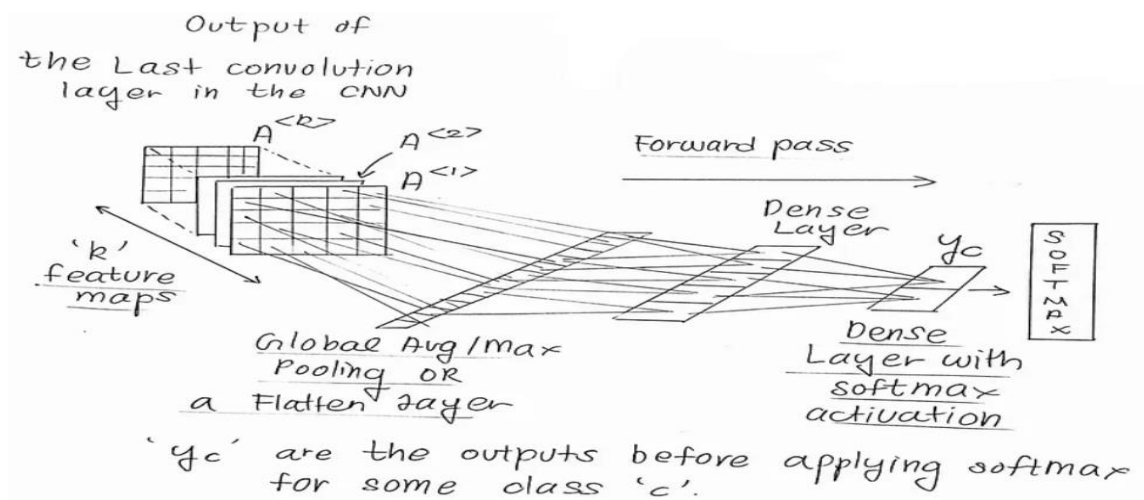 Output of
the Last convolution
layer in the CNN
A<k>
A<2>
A<1>
Forward pass
'k'
feature
maps
Dense
Layer
yc
SOFTMAX
Global Avg/max
Pooling OR
a Flatten Layer
Dense
Layer with
softmax
activation
'yc' are the outputs before applying softmax
for some class 'c'.